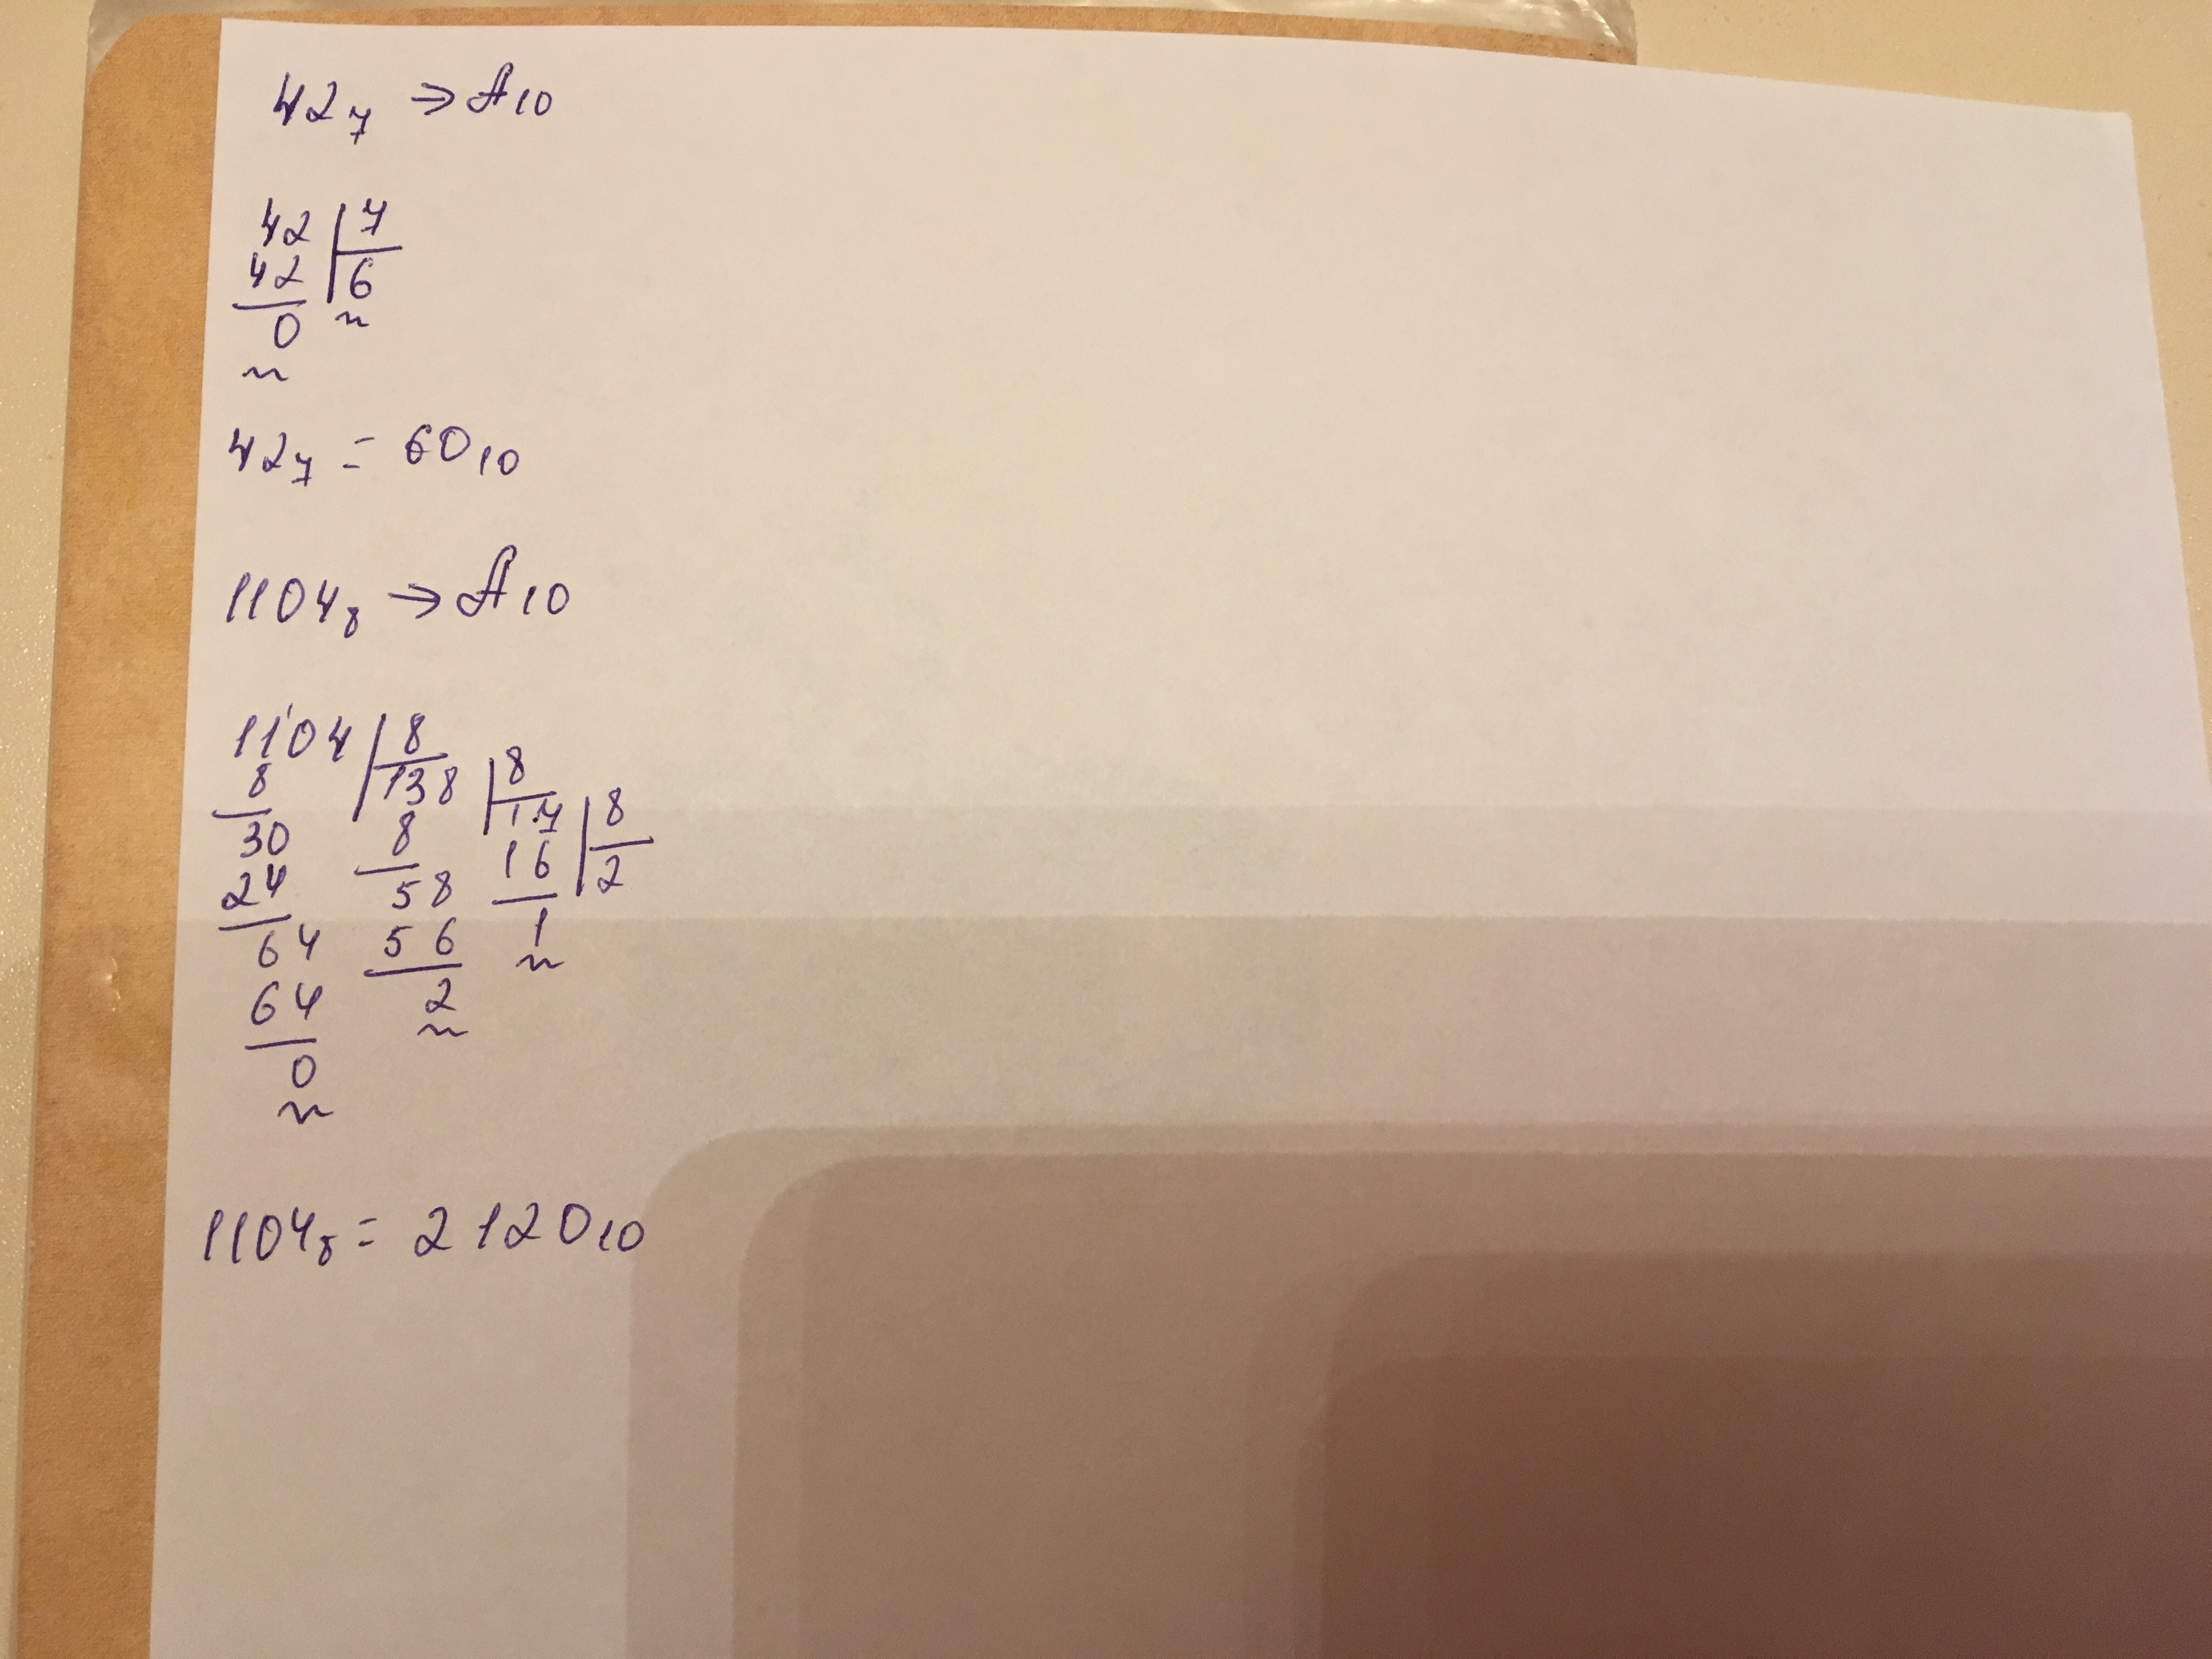 42₇ ⇒ A₁₀
42 | 7
42 | 6
0
42₇ = 60₁₀
1104₈ → A₁₀
1104 | 8
8 | 138 | 8
30 8 | 17 | 8
24 58 16 | 2
64 56 1
64 2
0
1104₈ = 2120₁₀